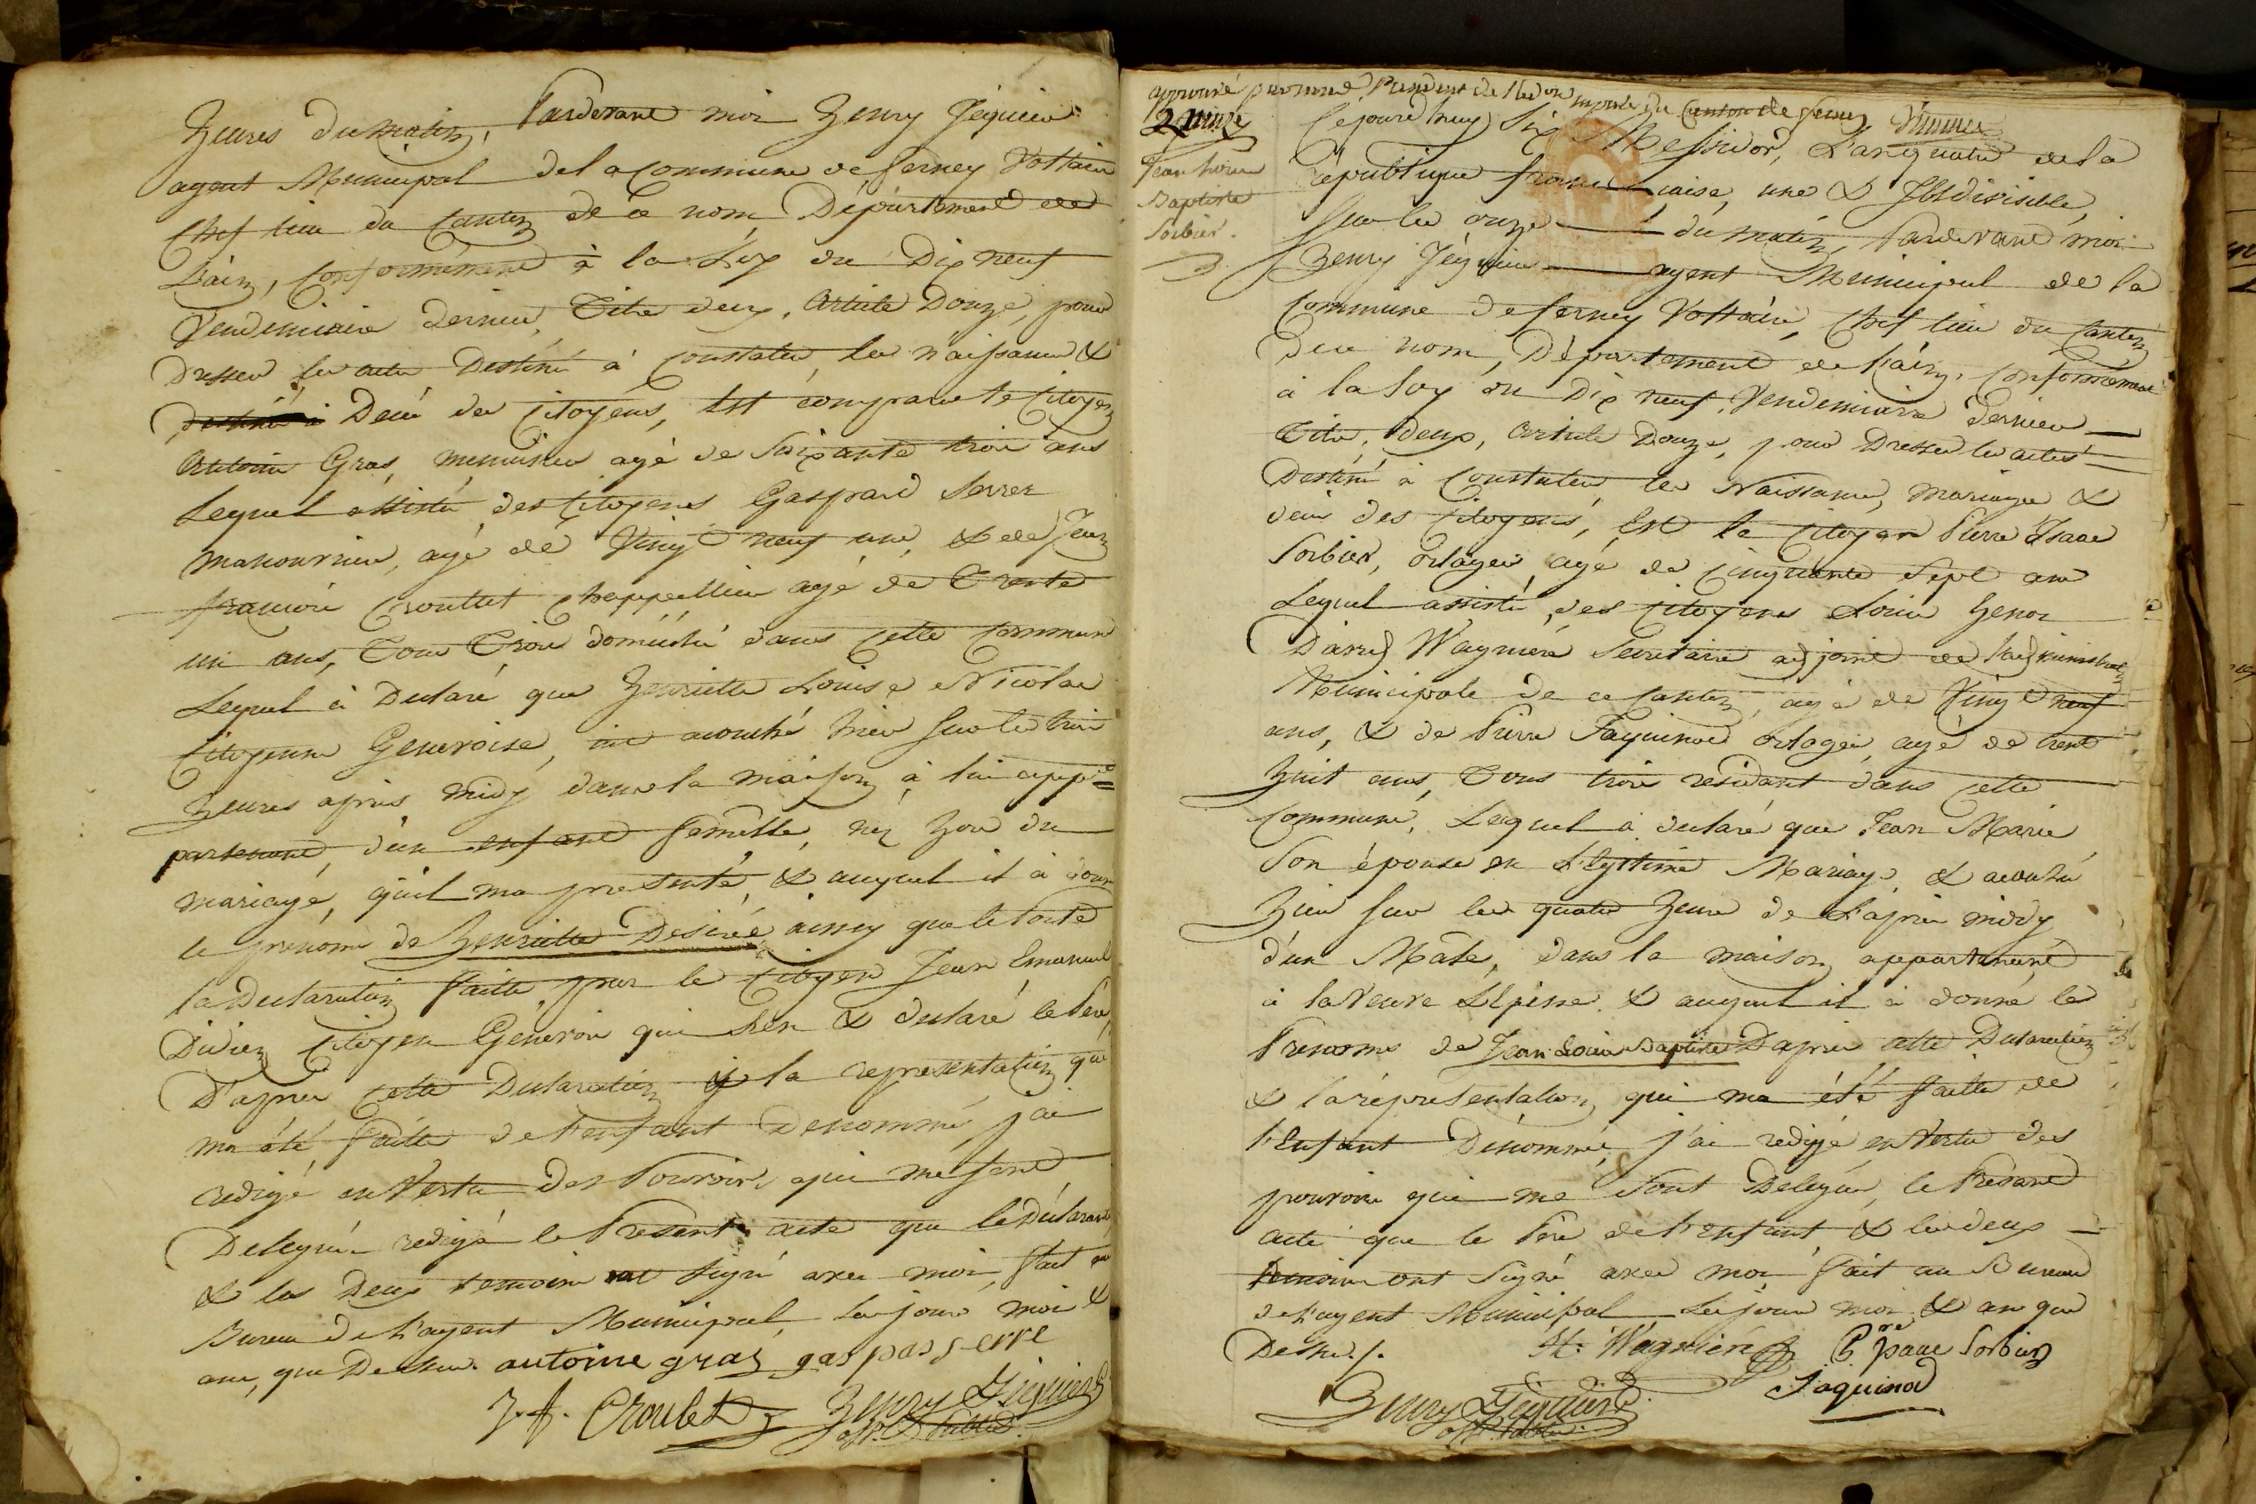 heures du matin, Pardevant moi Henry Jéquier
agent Municipal de la Commune de ferney Voltaire
Chef lieu du Canton de ce nom, Département de
L'ain, Conformément à la Loy du Dix neuf
Vendemiaire dernier, Titre deux, Article Douze, pour
Dresser les actes Destiné à Constater, les naissances &
Decés des Citoyens, Est comparu le Citoyen
Antoine Gras, menuisier agé de Soixante trois ans
Lequel assisté des Citoyens Gaspard Serrer
manouvrier, agé de Vingt neuf ans, & de Jean
françois Croultet Chappellier agé de Trente
un ans, Tous Trois domicilié dans Cette Commune
Lequel à Déclaré que Henriette Louise Nicolas
Citoyenne Genevoise, accouché hier sur les trois
heures après midy dans la maison à lui app=
partenant, d'un enfant femelle, né hors du
mariage, qu'il ma presenté, & auquel il à donné
le prenom de Henriette Desirée ainsy que le Porte
la Declaration faitte par le Citoyen Jean Emanuel
Didier Citoyen Genevois qui s'en & declaré le Pere,
D'après Cette Declaration & la representation que
ma été faitte de l'enfant Denommé, j'ai
redigé en Vertu des Pouvoirs qui me sont
Delegués redigé le Present acte que le Déclarant
& les Deux temoins ont Signé avec moi, fait au
Bureau de L'agent Municipal, Les jour mois &
an, que Dessus. antoine gras gaspas serre
J. f. Croulet Henry Jéquier
off. Public
approuvé President de l'ad. on municipale du Canton de ferney
Quinze
Jean Louis
Baptiste
Sorbier.
Cejourd'huy Six Messidor, L'an quatre de la
république francaise, une & Indivisible,
sur les onze du matin, Pardevant moi
Henry Jéquier agent Municipal de la
Commune de ferney Voltaire, Chef lieu du Canton
de ce nom, Département de L'ain, Conformément
à la Loy du Dix neuf, Vendemiaire dernier
Titre, deux, Article Douze, pour Dresser les actes
Destiné à Constater, les Naissances, mariages &
decés des Citoyens, Est le Citoyen Pierre Isaac
Sorbier, orlogé, agé de Cinquante Sept ans
Lequel assisté, des Citoyens Louis Henri
David Wagniere Secretaire adjoint de l'administration
Municipale de ce Canton, agé de Vingt neuf
ans, & de Pierre Jaquinod orloger, agé de trente
huit ans, Tous trois residant dans Cette
Commune, Lequel à declaré que Jean Marie
Son épouse en Légitime Mariage, & accouché
hier sur les quatre heure de L'après midy
d'un Male, dans la maison appartenant
à la Veuve L'Epine & auquel il à donné le
Prenoms de Jean Louis Baptiste D'après cette Declaration
& la répresentation, qui ma été faitte de
l'Enfant Dénommé, j'ai redigé en Vertu des
pouvoirs qui me sont Delegués, le Présent
acte que le Père de l'enfant & les deux
temoins ont Signé avec moi, fait au Bureau
de L'agent Municipal Les jour mois & an que
Dessus. H. Wagniere P.re Isaac Sorbier
Jaquinod
Henry Jéquier
off. Public